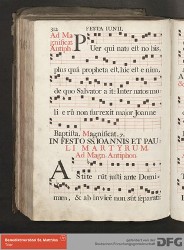 312 FESTA IUNII.
Ad Ma
gnificat
Antiph.
PUer qui natus est nobis,
plus quā propheta est, hic est enim,
de quo Salvator ait: Inter natos mu-
lierū non surrexit maior Joanne
Baptista. Magnificat. 7.
IN FESTO SS. IOANNIS ET PAU-
LI MARTYRUM.
Ad Magn. Antiphon.
AStite rūt iusti ante Domi-
num, & ab invicē non sūt separati:
Benediktinerabtei St. Matthias
Trier
DFG